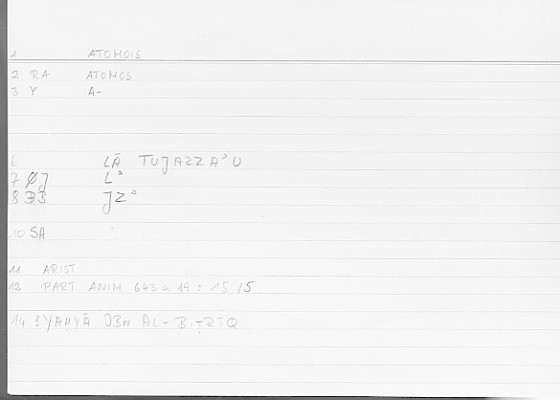 1 ATOMOIS
2 RA ATOMOS
3 Y A-
6 LĀ TUJAZZAʾU
7 ØJ Lʾ
8 BB JZʾ
10 SA
11 ARIST
12 PART ANIM 643 a 19 : 15 15
14 YAḤYĀ IBN AL-BIṬRĪQ